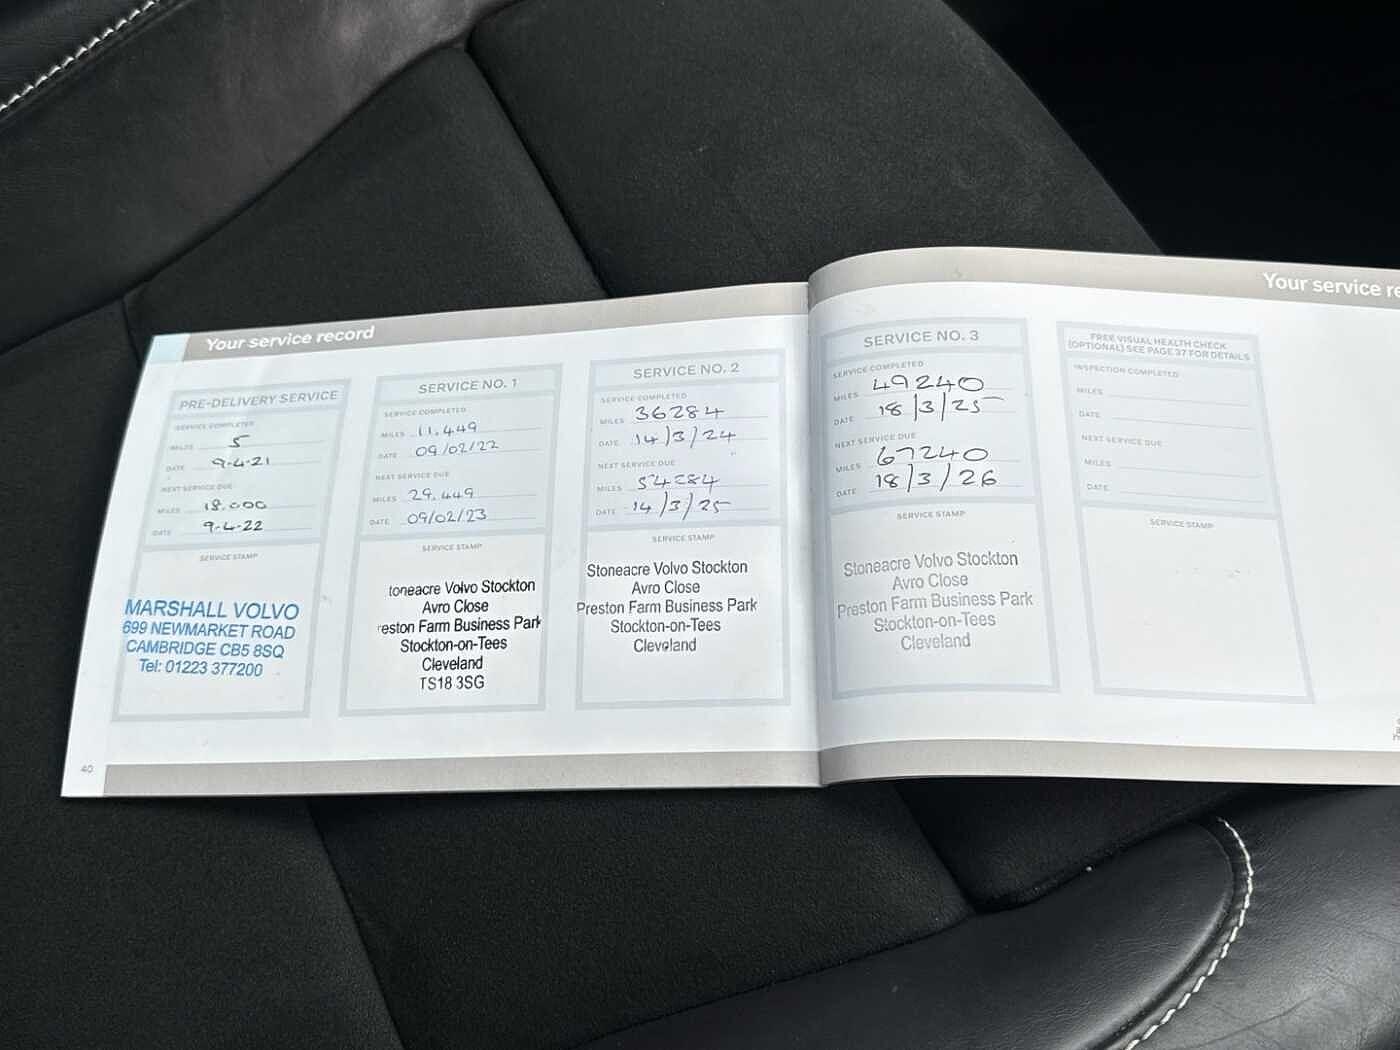 Your service record
PRE-DELIVERY SERVICE
SERVICE COMPLETED
MILES 5
DATE 9-4-21
NEXT SERVICE DUE
MILES 18.000
DATE 9-4-22
SERVICE STAMP
MARSHALL VOLVO
699 NEWMARKET ROAD
CAMBRIDGE CB5 8SQ
Tel: 01223 377200
SERVICE NO. 1
SERVICE COMPLETED
MILES 11,449
DATE 09/02/22
NEXT SERVICE DUE
MILES 29,449
DATE 09/02/23
SERVICE STAMP
toneacre Volvo Stockton
Avro Close
reston Farm Business Park
Stockton-on-Tees
Cleveland
TS18 3SG
SERVICE NO. 2
SERVICE COMPLETED
MILES 36284
DATE 14/3/24
NEXT SERVICE DUE
MILES 54284
DATE 14/3/25
SERVICE STAMP
Stoneacre Volvo Stockton
Avro Close
Preston Farm Business Park
Stockton-on-Tees
Cleveland
40
Your service re
SERVICE NO. 3
SERVICE COMPLETED
MILES 49240
DATE 18/3/25
NEXT SERVICE DUE
MILES 67240
DATE 18/3/26
SERVICE STAMP
Stoneacre Volvo Stockton
Avro Close
Preston Farm Business Park
Stockton-on-Tees
Cleveland
FREE VISUAL HEALTH CHECK
(OPTIONAL) SEE PAGE 37 FOR DETAILS
INSPECTION COMPLETED
MILES
DATE
NEXT SERVICE DUE
MILES
DATE
SERVICE STAMP